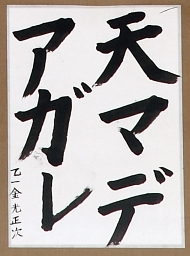 天マデ
アガレ
乙一金光正穴